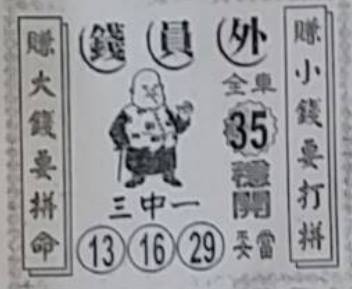 賺小錢要打拼
錢員外
全車
35
穩開
三中一
13 16 29
當
賺大錢要拼命